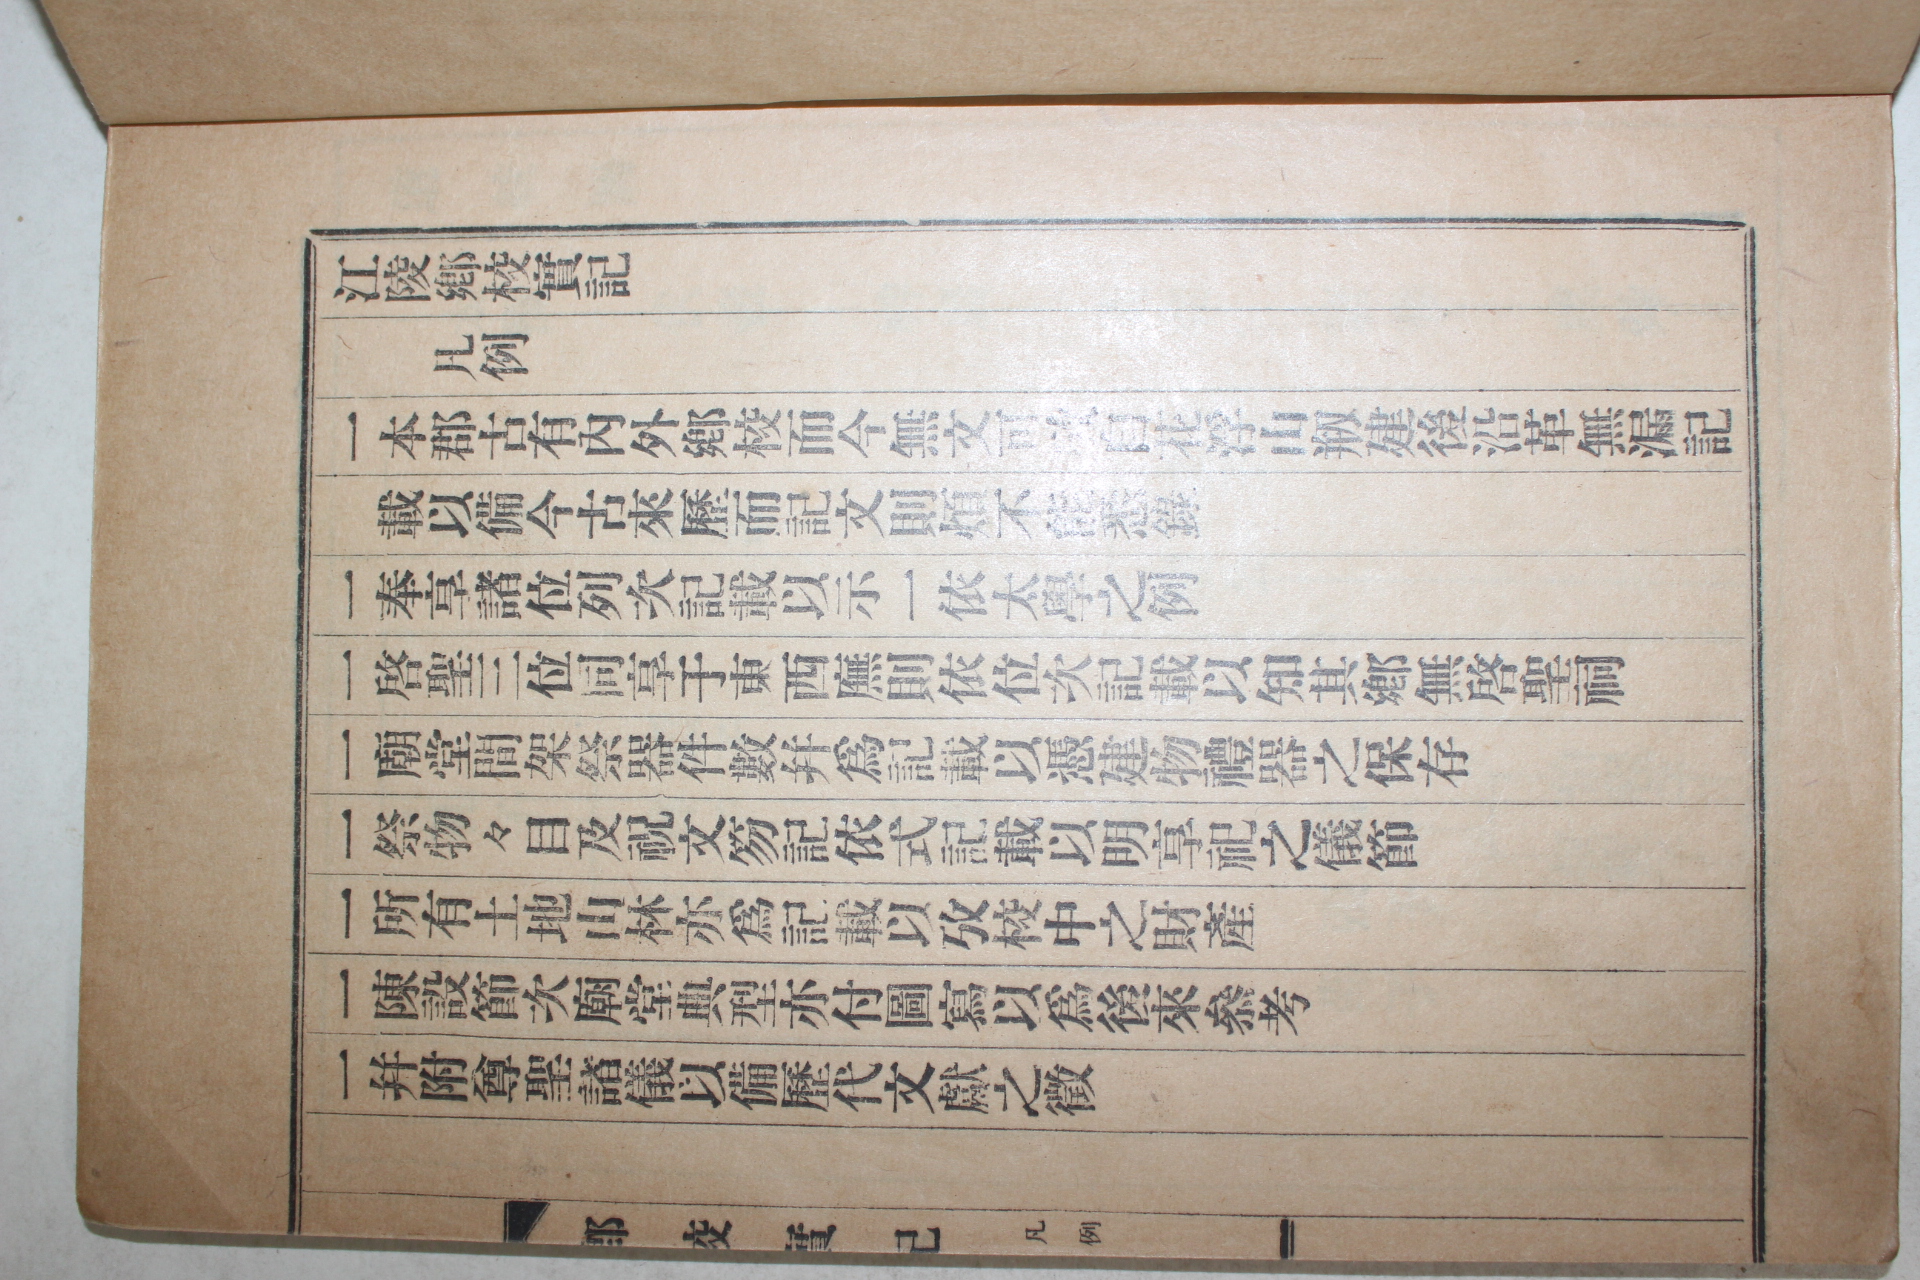 江陵鄕校實記
凡例
一本郡古有內外鄕校而今無文可考自花浮山刱建後沿革無漏記
載以備今古來歷而記文則煩不能悉錄
一奉享諸位列次記載以示一依太學之例
一啓聖三位同享于東西廡則依位次記載以知其鄕無啓聖祠
一廟堂間架祭器件數幷爲記載以憑建物禮器之保存
一祭物々目及祝文笏記依式記載以明享祀之儀節
一所有土地山林亦爲記載以攷校中之財產
一陳設節次廟堂典型亦付圖寫以爲後來參考
一幷附尊聖諸儀以備歷代文獻之徵
鄕校實記 凡例